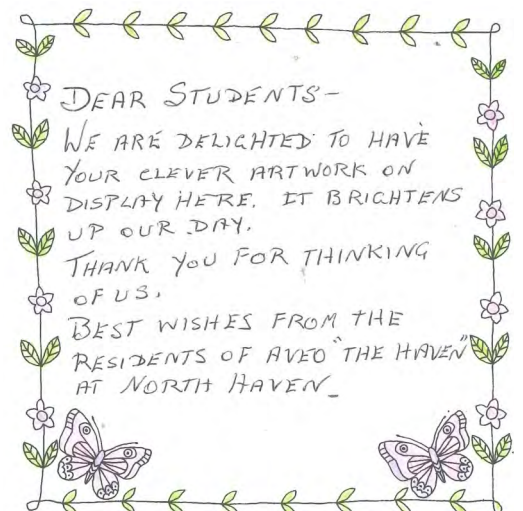 DEAR STUDENTS-
WE ARE DELIGHTED TO HAVE
YOUR CLEVER ARTWORK ON
DISPLAY HERE. IT BRIGHTENS
UP OUR DAY.
THANK YOU FOR THINKING
OF US.
BEST WISHES FROM THE
RESIDENTS OF AVEO "THE HAVEN"
AT NORTH HAVEN_